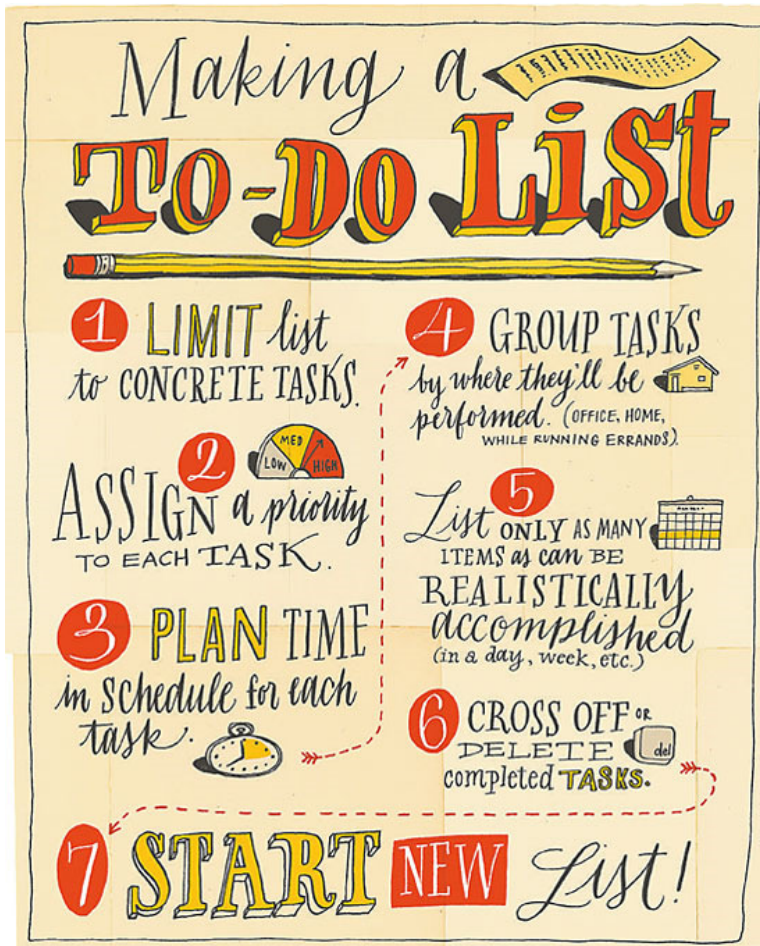 Making a
TO-DO LiSt
1 LIMIT list
to CONCRETE TASKS.
2
LOW MED HIGH
ASSIGN a priority
TO EACH TASK.
3 PLAN TIME
in SCHEDULE for each
task.
4 GROUP TASKS
by where they'll be
performed. (OFFICE, HOME,
WHILE RUNNING ERRANDS).
5
List ONLY AS MANY
ITEMS as can BE
REALISTICALLY
accomplished
(in a day, week, etc.)
6 CROSS OFF OR
DELETE del
completed TASKS.
7 START NEW List!